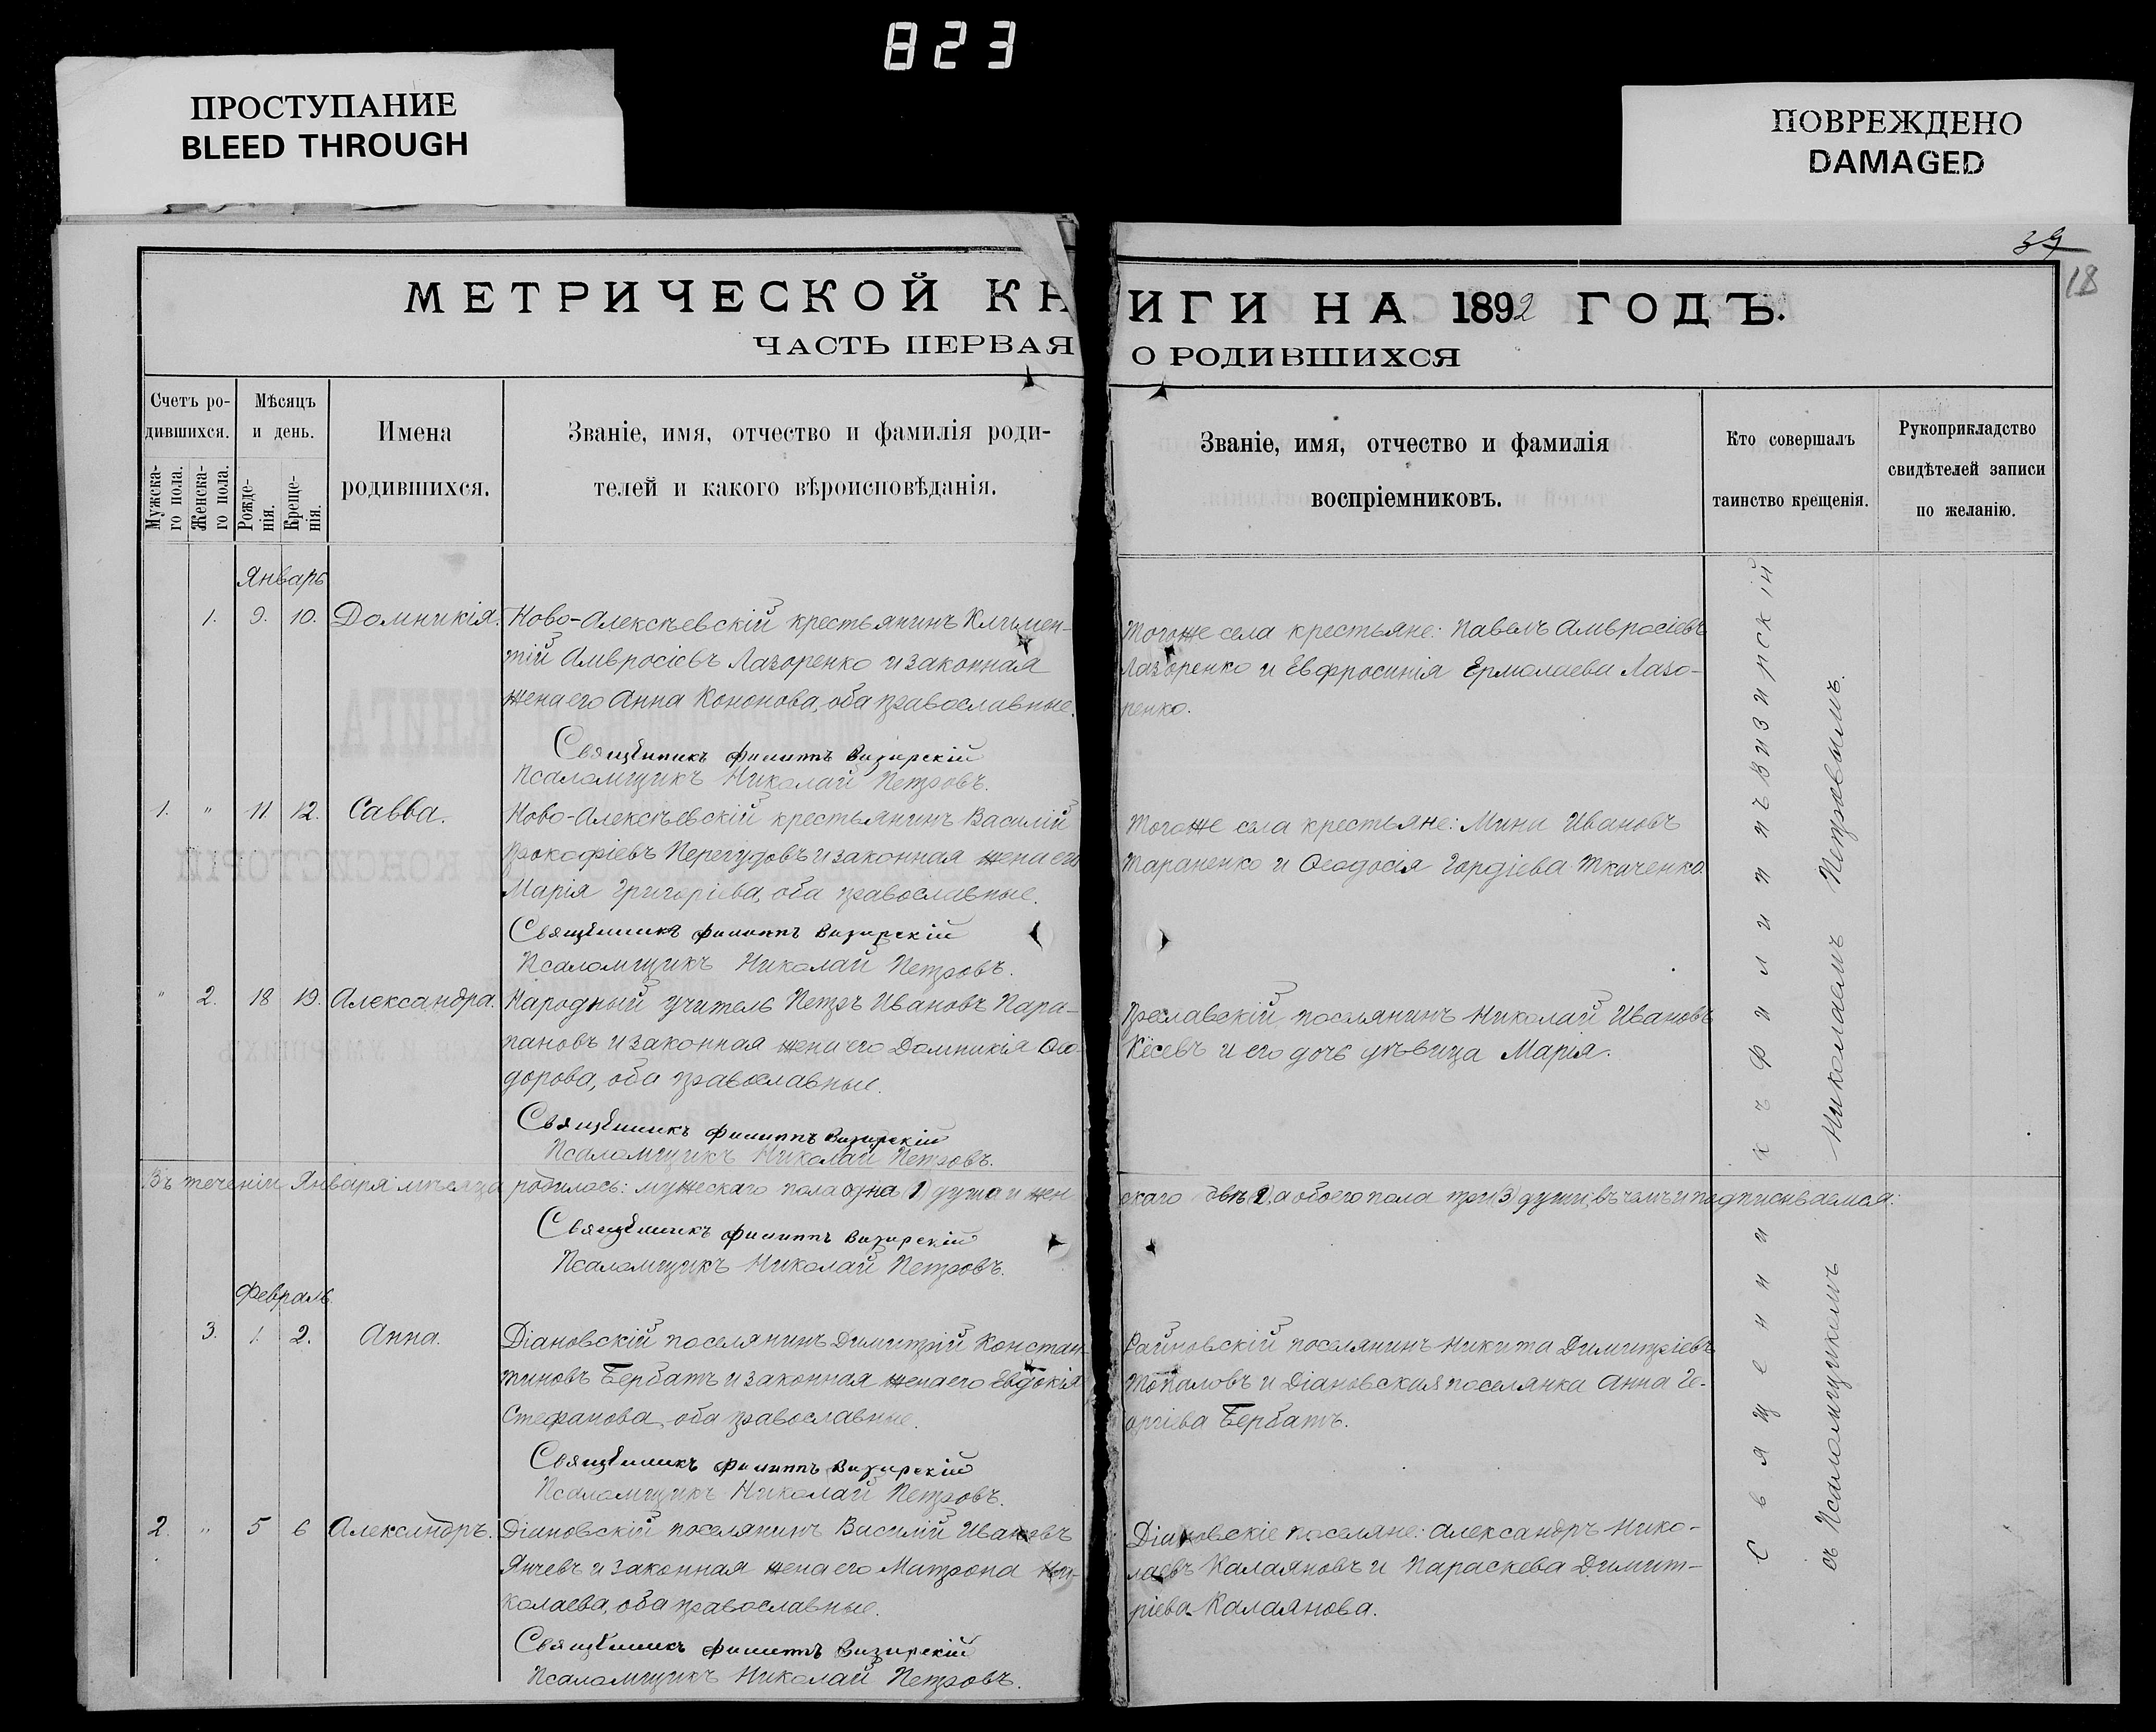 823
ПРОСТУПАНИЕ
BLEED THROUGH
ПОВРЕЖДЕНО
DAMAGED
39
18
МЕТРИЧЕСКОЙ КН
ИГИ НА 1892 ГОДЪ.
ЧАСТЬ ПЕРВАЯ
О РОДИВШИХСЯ
Счетъ ро-
дившихся.
Мужска-
го пола.
Женска-
го пола.
Мѣсяцъ
и день.
Рожде-
нія.
Креще-
нія.
Имена
родившихся.
Званіе, имя, отчество и фамилія роди-
телей и какого вѣроисповѣданія.
Званіе, имя, отчество и фамилія
воспріемниковъ.
Кто совершалъ
таинство крещенія.
Рукоприкладство
свидѣтелей записи
по желанію.
Январь
1. 9. 10. Домникія. Ново-Алексѣевскій крестьянинъ Климен-
тій Амвросіевъ Лазоренко и законная
жена его Анна Кононова, оба православные.
Священникъ Филиппъ Визирскій
Псаломщикъ Николай Петровъ.
Тогоже села крестьяне: Павелъ Амвросіевъ
Лазоренко и Евфросинія Ермолаева Лазо-
ренко.
1. " 11 12. Савва. Ново-Алексѣевскій крестьянинъ Василій
Прокофіевъ Перегудовъ и законная жена его
Марія Григоріева, оба православные.
Священникъ Филиппъ Визирскій
Псаломщикъ Николай Петровъ.
Тогоже села крестьяне: Мина Ивановъ
Тараненко и Ѳеодосія Гордіева Ткаченко.
" 2. 18 19. Александра. Народный учитель Петръ Ивановъ Пара-
пановъ и законная жена его Домникія Ѳео-
дорова, оба православные.
Священникъ Филиппъ Визирскій
Псаломщикъ Николай Петровъ.
Преславскій поселянинъ Николай Ивановъ
Кёсевъ и его дочь дѣвица Марія.
Въ теченіи Января мѣсяца родилось: мужескаго пола одна (1) душа и жен
скаго двѣ (2), а обоего пола три (3) души; въ чемъ и подписываемся:
Священникъ Филиппъ Визирскій
Псаломщикъ Николай Петровъ.
Февраль.
3. 1. 2. Анна. Діановскій поселянинъ Димитрій Констан
тиновъ Бербатъ и законная жена его Евдокія
Стефанова, оба православные.
Священникъ Филиппъ Визирскій
Псаломщикъ Николай Петровъ.
Райновскій поселянинъ Никита Димитріевъ
Топаловъ и Діановская поселянка Анна Ге-
оргіева Бербатъ.
2. " 5 6 Александръ. Діановскій поселянинъ Василій Ивановъ
Янчевъ и законная жена его Матрона Ни-
колаева, оба православные.
Священникъ Филиппъ Визирскій
Псаломщикъ Николай Петровъ.
Діановскіе поселяне: Александръ Нико-
лаевъ Калаяновъ и Параскева Димит-
ріева Калаянова.
Священникъ Филиппъ Визирскій
съ Псаломщикомъ Николаемъ Петровымъ.